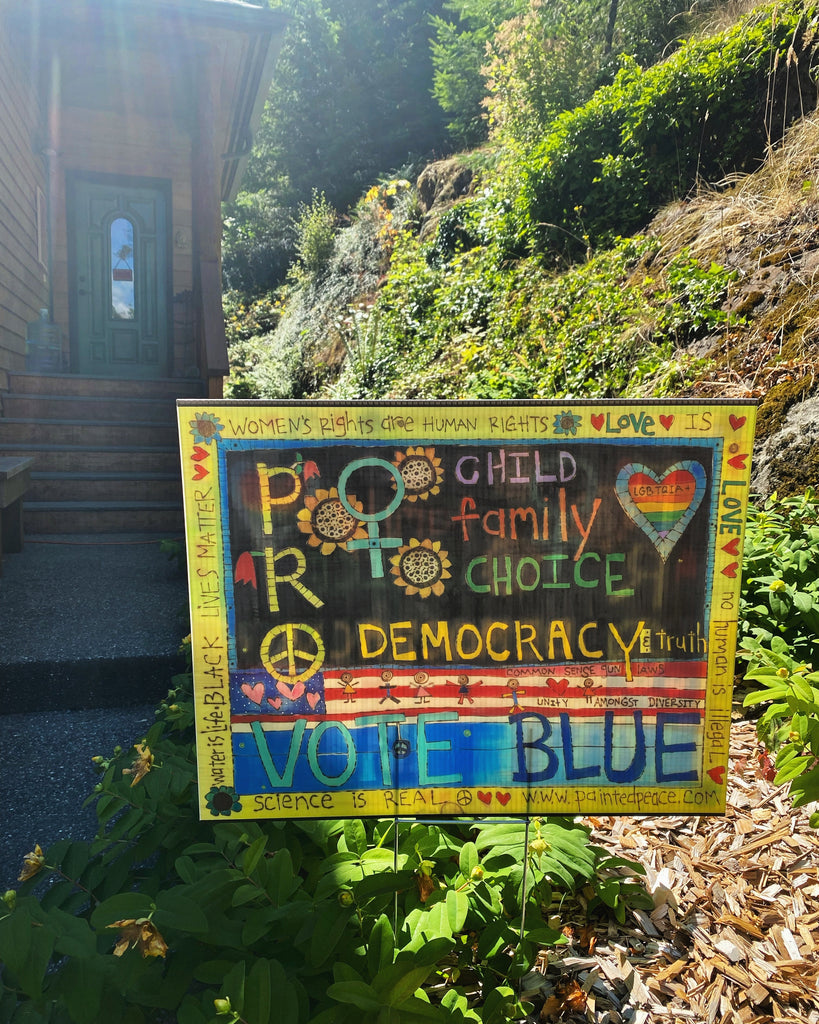 WOMEN'S Rights are HUMAN RIGHTS LOVE IS
LOVE
no human is illegal
water is life • BLACK LIVES MATTER
PRO
CHILD
family
CHOICE
LGBTQIA+
DEMOCRACY & truth
COMMON SENCE GUN LAWS
UNITY AMONGST DIVERSITY
VOTE BLUE
science is REAL www.paintedpeace.com